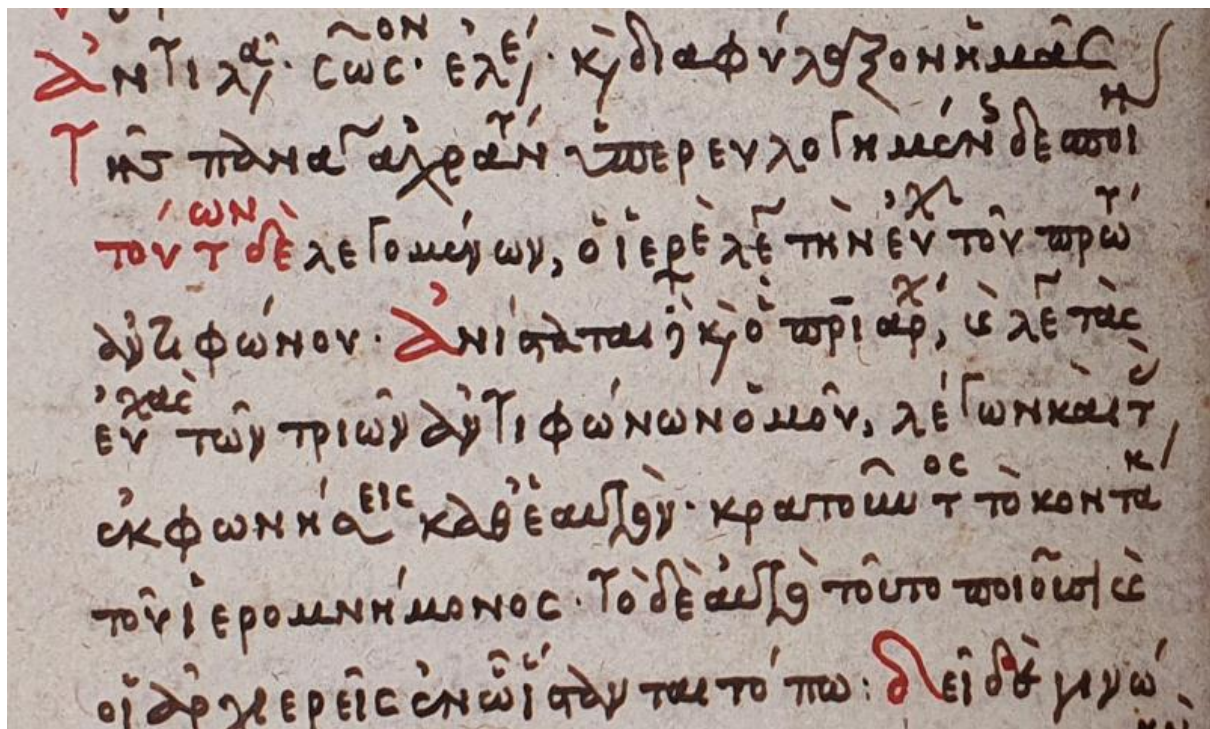 Ἀντιλαʹ· σῶσον· ἐλέʹ· κ διαφύλαξον ἡμᾶς
Τῆς παναγ ἀχράντ ὑπερευλογημένς δεσποιν
τούτων δὲ λεγομένων, ὁ ἱερε λεγ τὴν εὐχ τοῦ πρώτ
ἀντιφώνου. Ἀνίσταται κ ὁ πριαρχ, λεγ τὰς
εὐχὰς τῶν τριῶν ἀντιφώνων ὁμοῦ, λέγων καὶ τὰς
ἐκφωνήσεις καθ' ἑαυτόν· κρατοῦντος τὸ κοντάκ
τοῦ ἱερομνήμονος. Τὸ δὲ αὐτὸ τοῦτο ποιοῦσι κ
οἱ ἀρχιερεῖς ἐν ᾧ ἵστανται τόπω: δεῖ δὲ γινώ